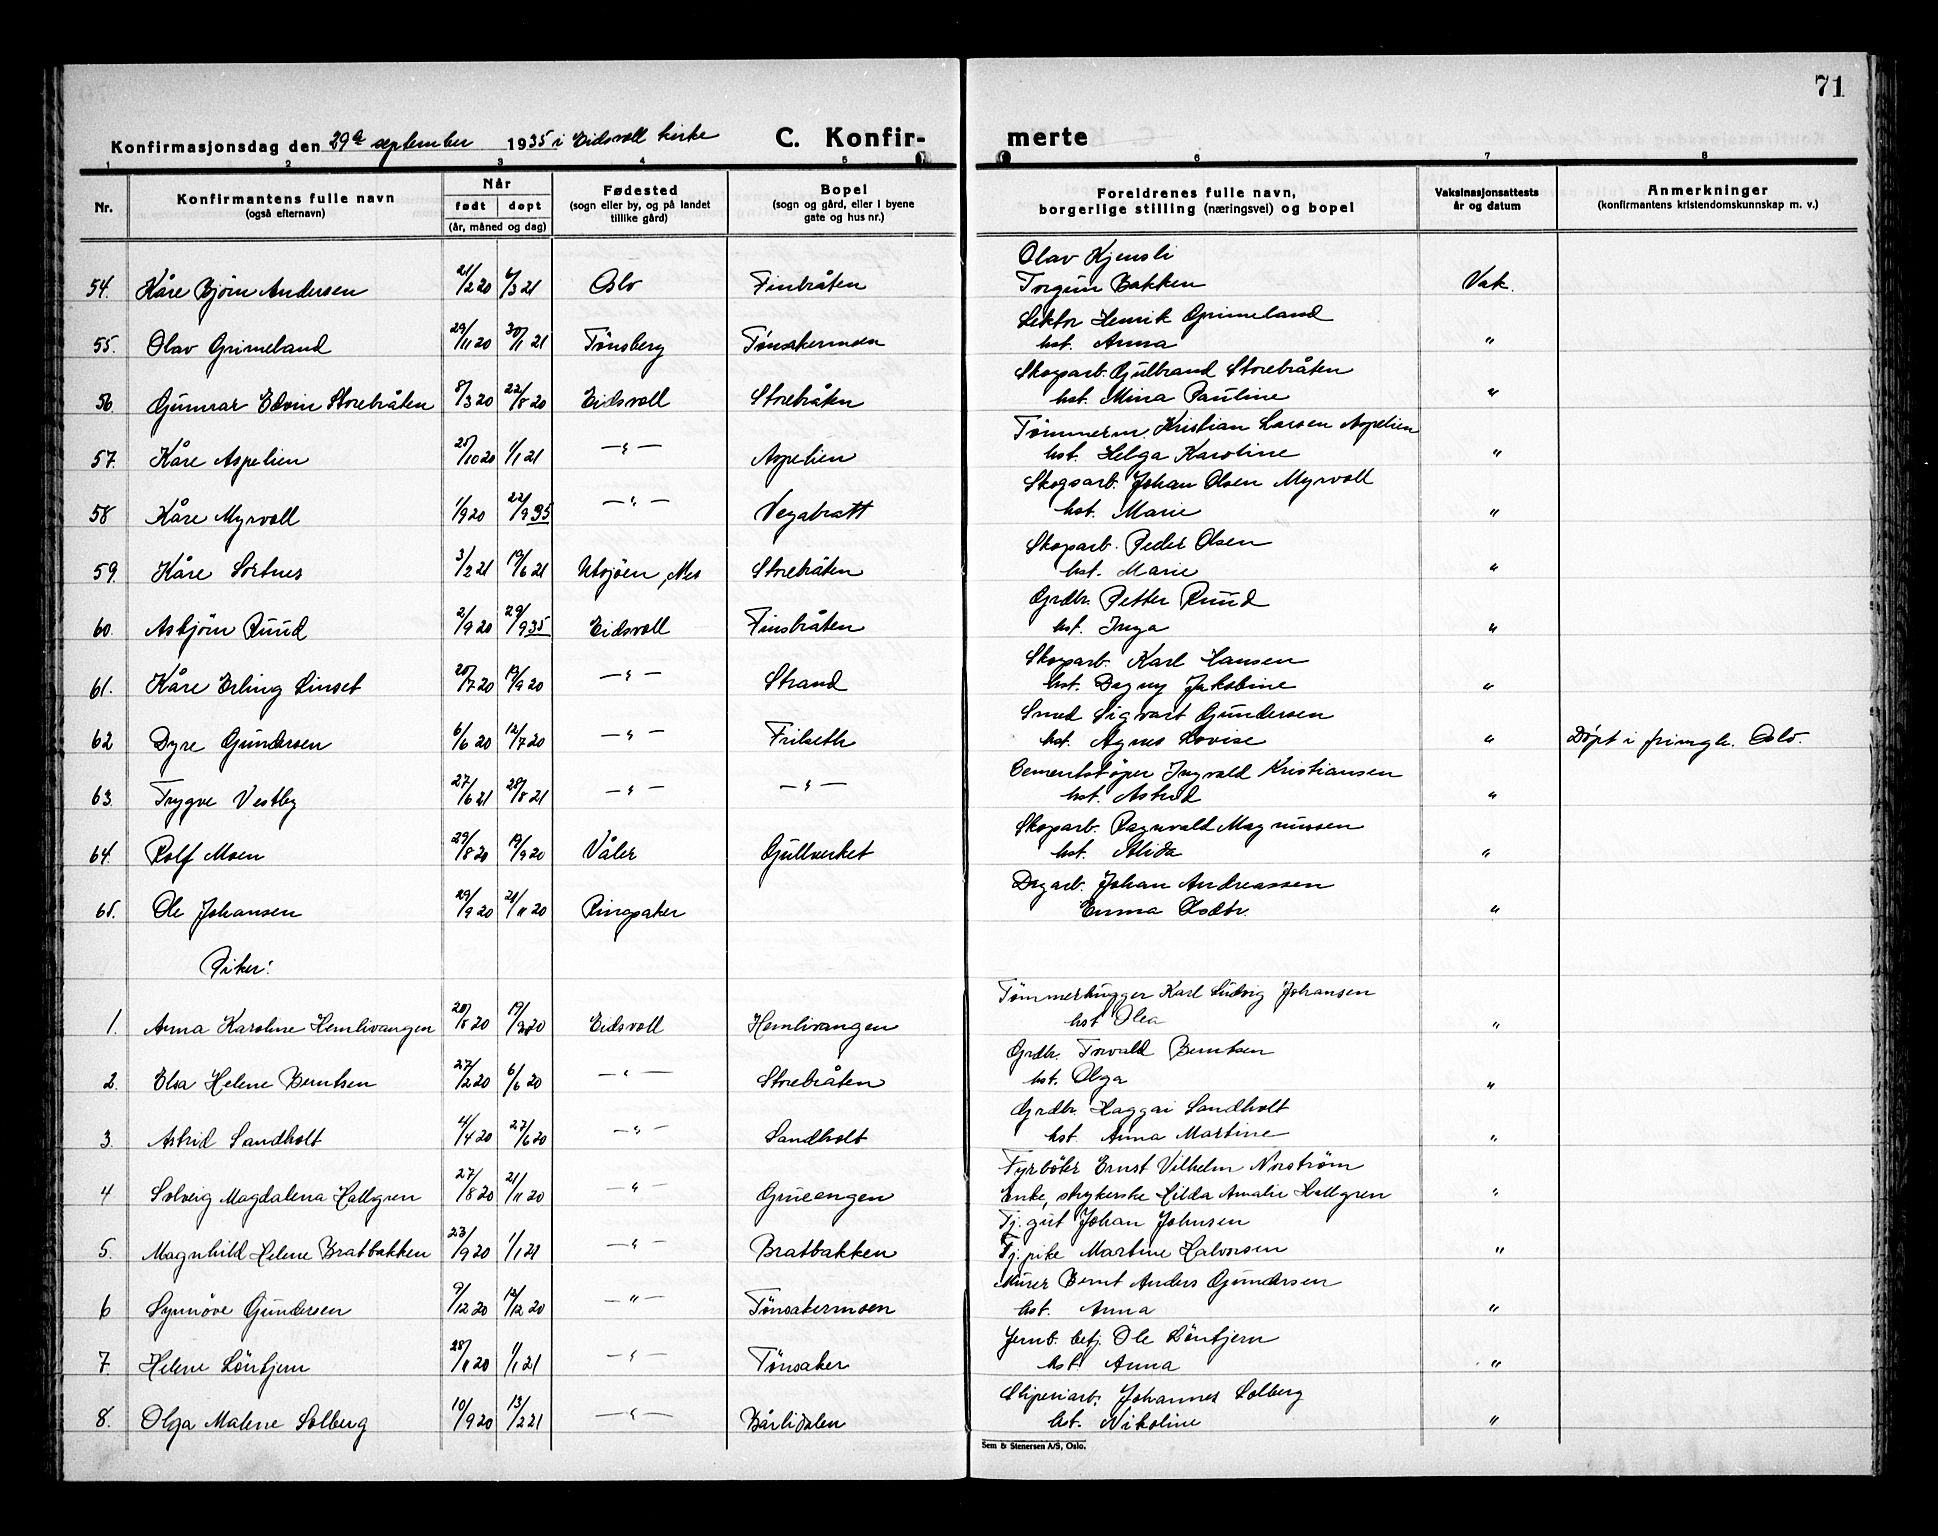 71
Konfirmasjonsdag den 29de september 1935 i Eidsvoll kirke C. Konfir- merte
1 2 3 4 5 6 7 8
Nr. Konfirmantens fulle navn (også efternavn) Når født døpt (år, måned og dag) Fødested (sogn eller by, og på landet tillike gård) Bopel (sogn og gård, eller i byene gate og hus nr.) Foreldrenes fulle navn, borgerlige stilling (næringsvei) og bopel Vaksinasjonsattests år og datum Anmerkninger (konfirmantens kristendomskunnskap m. v.)
Olav Kjensli
54. Kåre Bjørn Andersen 21/2 20 6/3 21 Oslo Finbråten Torgun Bakken Vak.
Lektor Henrik Grimeland
55. Olav Grimeland 29/11 20 30/1 21 Tønsberg Tønsakermoen hst. Anna "
Skogsarb. Gulbrand Storebråten
56. Gunnar Edvin Storebråten 8/3 20 22/8 20 Eidsvoll Storebråten hst. Mina Pauline "
Tømmerm. Kristian Larsen Aspelien
57. Kåre Aspelien 25/10 20 1/1 21 —"— Aspelien hst. Helga Karoline "
Skogsarb. Johan Olsen Myrvoll
58 Kåre Myrvoll 1/9 20 22/9 35 —"— hst. Marie "
Skogarb. Peder Olsen
59. Kåre Sortnes 3/2 21 19/6 21 Utsjøen, Nes Storebråten hst. Marie "
Grdbr. Petter Ruud
60. Asbjørn Ruud 2/9 20 29/9 35 Eidsvoll Finsbråten hst. Inga "
Skogarb. Karl Hansen
61. Kåre Erling Linset 20/7 20 19/9 20 —"— Strand hst. Dagny Jakobine "
Smed Sigvart Gundersen
62 Dyre Gundersen 6/6 20 12/7 20 —"— Frilseth hst. Agnes Lovise " Døpt i Oslo.
Cementstøper Ingvald Kristiansen
63. Trygve Vestby 27/6 21 28/8 21 —"— —"— hst. Astrid "
Skogarb. Ragnvald Magnussen
64. Rolf Moen 29/8 20 19/9 20 Våler Gullverket hst. Alida "
Dagarb. Johan Andreassen
65. Ole Johansen 29/9 20 21/11 20 Ringsaker Emma Olsdtr. "
Piker:
Tømmerhugger Karl Ludvig Johansen
1. Anna Karoline Hemlivangen Eidsvoll Hemlivangen hst Olea "
Grdbr. Torvald Berntsen
2. Elsa Helene Berntsen 27/2 20 6/6 20 —"— Storebråten hst. Olga "
Grdbr. Haggai Sandholt
3. Astrid Sandholt 4/4 20 27/6 20 —"— Sandholt hst. Anna Martine "
Fyrbøter Ernst Vilhelm Norström
4 Solveig Magdalena Hallgren 27/8 20 21/11 20 —"— Grueengen Enke, strykerske Hilda Amalie Hallgren "
Tj. gut Johan Johnsen
5. Magnhild Helene Bratbakken 23/9 20 1/1 21 —"— Bratbakken Tj. pike Martine Halvorsen "
Murer Bernt Anders Gundersen
6 Synnøve Gundersen 9/12 20 12/12 20 —"— Tønsakermoen hst. Anna "
Jernb. betj. Ole Löntjern
7. Helene Löntjern 28/11 20 1/1 21 —"— Tønsaker hst. Anna "
Sliperiarb. Johannes Solberg
8. Olga Malene Solberg 10/9 20 13/2 21 —"— Bårlidalen hst. Nikoline "
Sem & Stenersen A/S, Oslo.